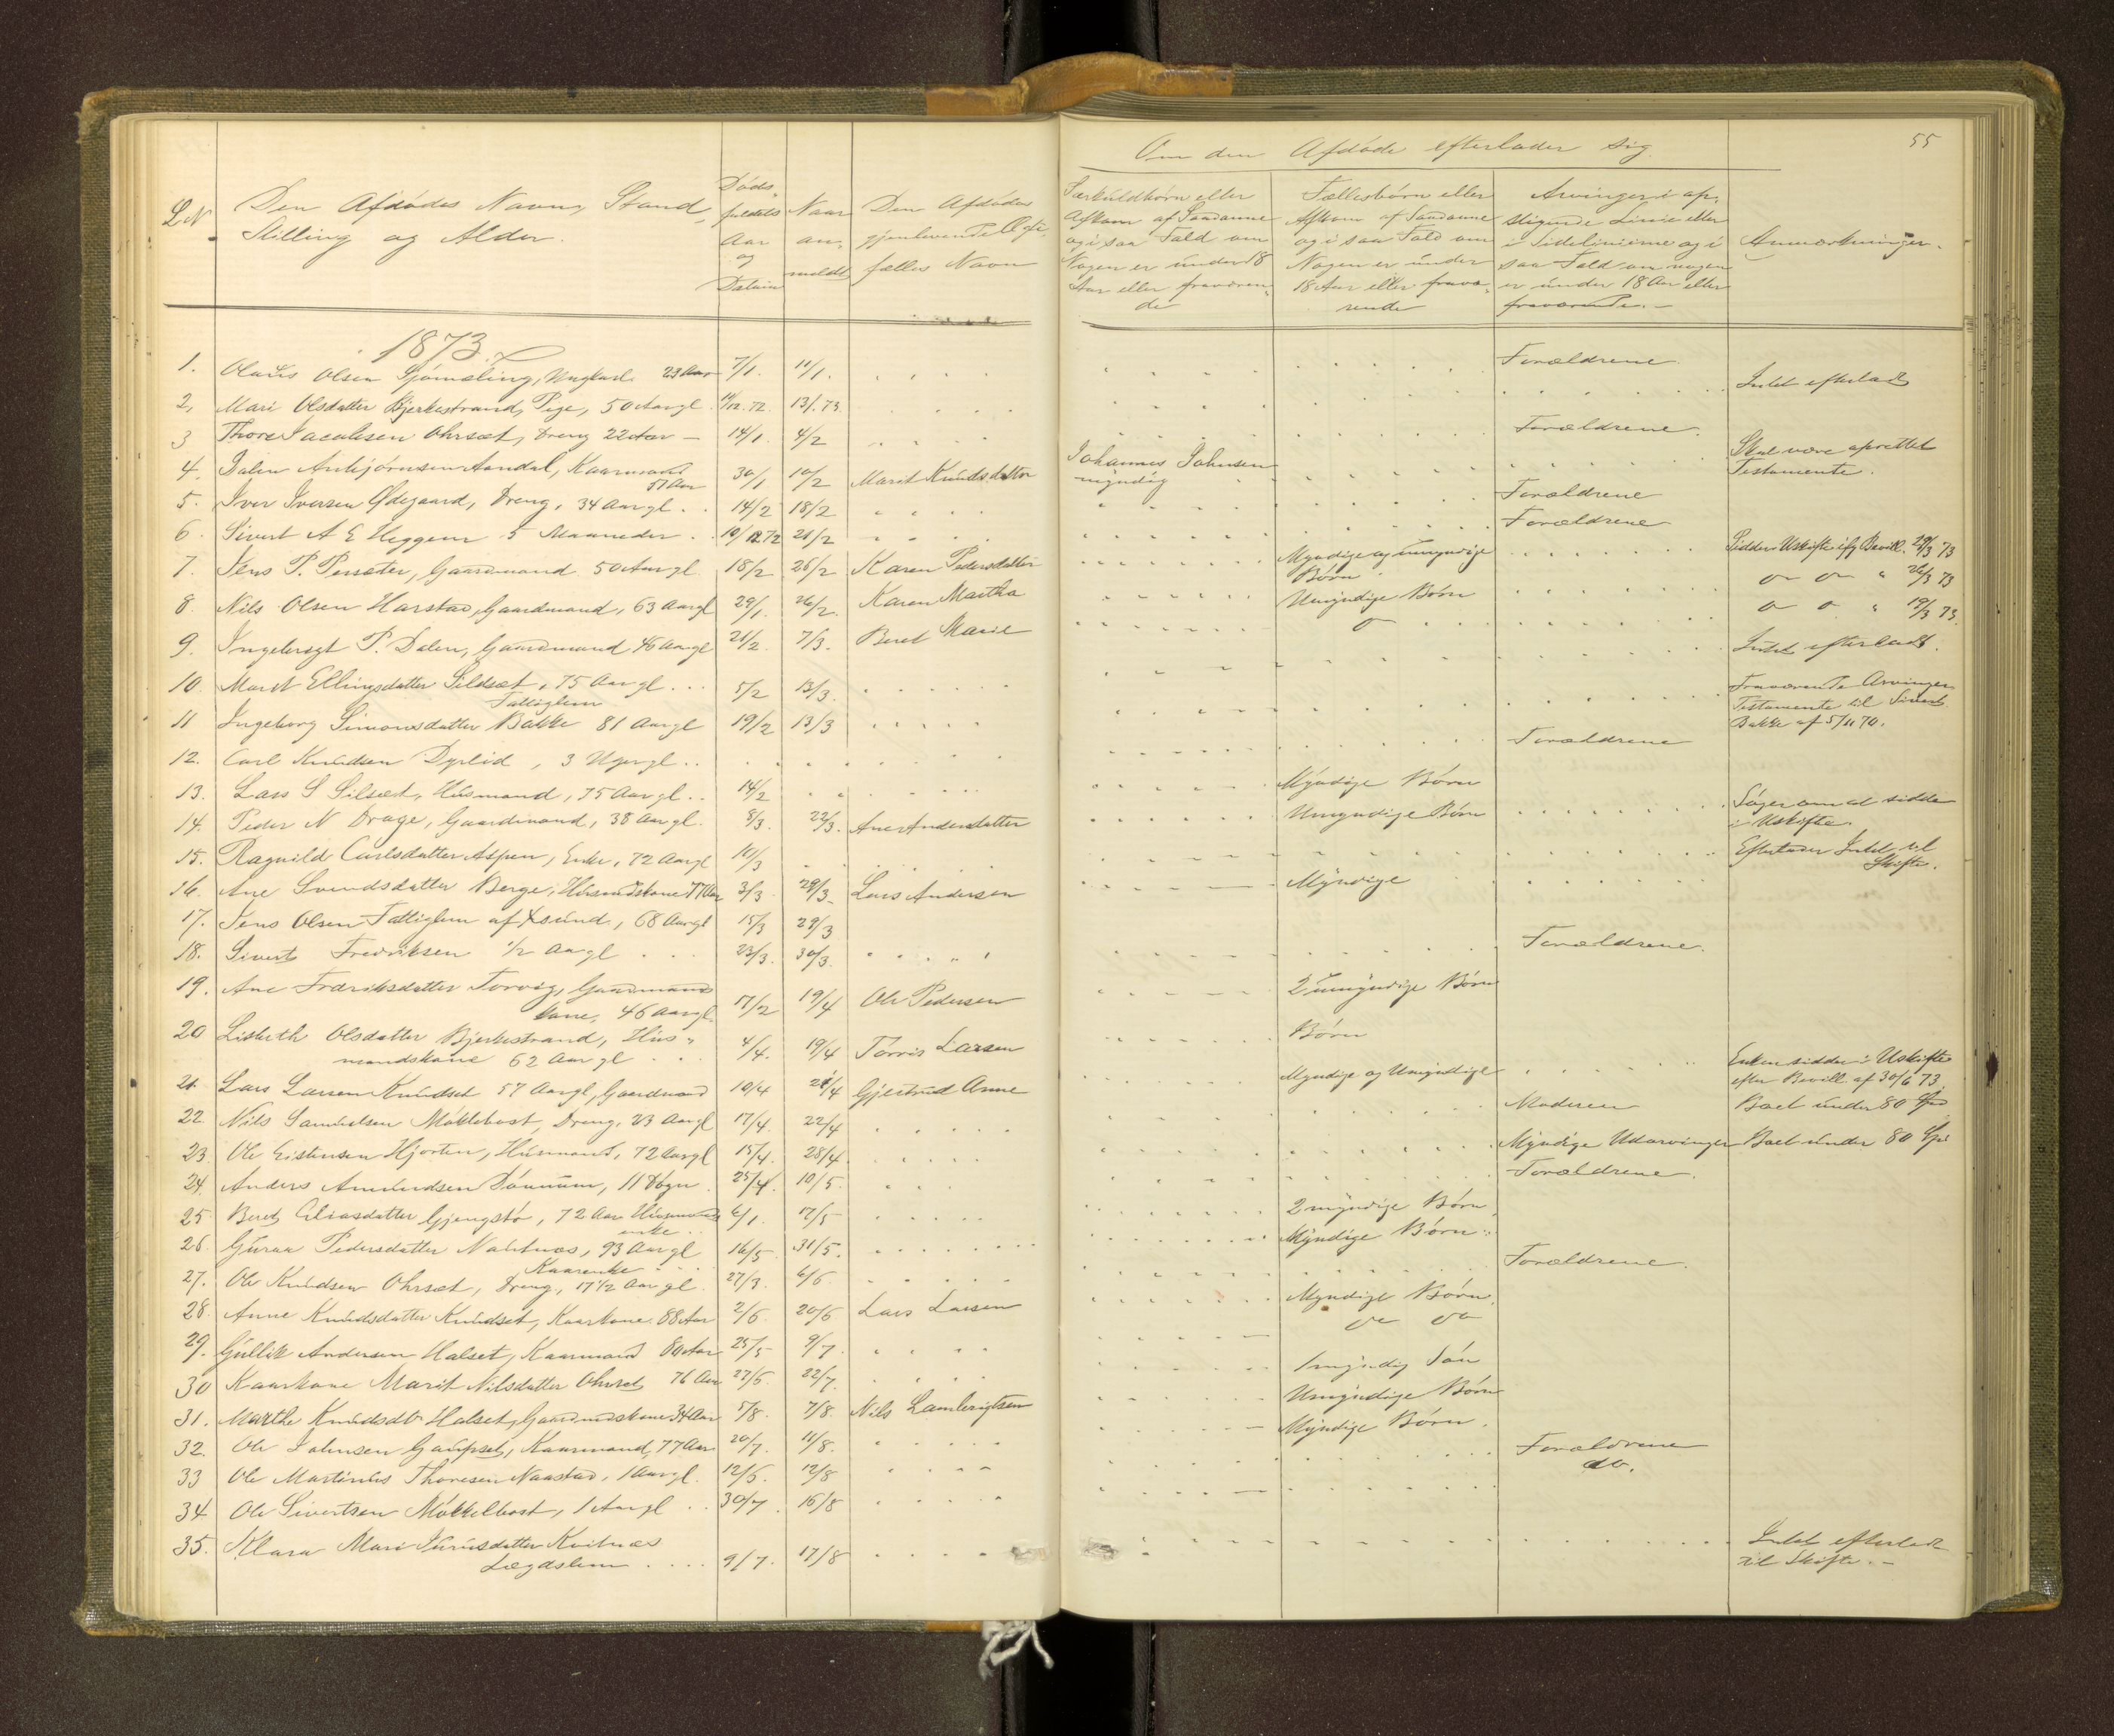 55
Om den Afdøde efterlader sig
L. N.
Den Afdødes Navn, Stand, Stilling og Alder.
Dødsfaldets Aar og Datum
Naar anmeldt
Den Afdødes gjenlevende Ægtefælles Navn
Særkuldbørn eller Afkom af Saadanne og i saa Fald om Nogen er under 18 Aar eller fraværende
Fællesbørn eller Afkom af Saadanne og i saa Fald om Nogen er under 18 Aar eller fraværende
Arvinger i opstigende Linie eller i Sidelinierne og i saa Fald om nogen er under 18 Aar eller fraværende.-
Anmærkninger.
1873.
1. Olaus Olsen Gjømæling, Ungkarl 23 Aar 7/1. 11/1. Forældrene
2, Mari Olsdatter Bjerkestrand, Pige, 50 Aar gl. 12.72. 13/1.73. Intet efterladt
3 Thore Jacobsen Ohrset, Dreng 22 Aar - 14/1. 4/2 Forældrene.
4. Asbjørnsen Aandal, Kaarmand 51 Aar 30/1 10/2 Marit Knudsdatter Johannes Johnsen myndig Skal være oprettet Testamente.
5. Iver Iversen Ødegaard, Dreng, 34 Aar gl. 14/2 18/2 Forældrene
6. Sivert A E Heggem 5 Maaneder. 10/12 72 21/2 Forældrene
7. Jens P. Persæter, Gaardmand 50 Aar gl. 18/2 26/2 Karen Pedersdatter Myndige og umyndige Børn Sidder i Uskifte ifg Bevill. 29/3 73
8. Nils Olsen Harstad, Gaardmand, 63 Aar gl 29/1. 26/2. Karen Martha Umyndige Børn do do " 26/3 73
9. Ingebrigt P. Dalen, Gaardmand 46 Aar gl 21/2 7/3. Beret Marie do do do " 19/3 73.
10. Marit Ellingsdatter Sildset, 75 Aar gl... Fattiglem 5/2 13/3. Intet efterladt.
11 Ingeborg Simonsdatter Bakke 81 Aar gl 19/2 13/3 Fraværende Arvinger Testamente til Sivert Bakke af 5/11 70.
12. Carl Knudsen Dyrlid, 3 Uger gl.. Forældrene
13. Lars S Silset, Husmand, 75 Aar gl.. 14/2 Myndige Børn
14. Peder N Drage, Gaardmand, 38 Aar gl. 8/3. 22/3. Ane Andersdatter Umyndige Børn Søger om at sidde i Uskifte.
15. Ragnild Carlsdatter Aspen, Enke, 72 Aar gl 10/3 Efterlader Intet til Skifte.
16. Ane Svendsdatter Berge, Husmandskone 3/3 29/3 Lars Andersen Myndige
17. Jens Olsen Fattiglem af Xsund, 68 Aar gl 15/3 29/3
18. Sivert Fredriksen 1/2 Aar gl 23/3. 30/3. Forældrene.
19. Ane Fredriksdatter Torvig, Gaardmands kone, 46 Aar gl. 17/2 19/4 Ole Pedersen 2 umyndige Børn
20 Lisbeth Olsdatter Bjerkestrand, Husmandskone 62 Aar gl 4/4. 19/4 Torris Larsen Børn
21. Lars Larsen Knudset 57 Aar gl, Gaardmand 10/4 21/4 Gjertrud Anne Myndige og Umyndige Enken sidder i Uskifte efter Bevill. af 30/6 73.
22. Nils Samuelsen Møklebost, Dreng, 23 Aar gl 17/4. 22/4 Moderen Boet under 80 Spd
23 Ole Eistensen Hjorten, Husmand, 72 Aar gl 15/4. 28/4. Myndige Udarvinger Boet under 80 Spd
24. Anders Amundsen Dønnum, 11 Døgn 25/4. 10/5. Forældrene.
25 Beret Eliasdatter Gjengstø, 72 Aar Husmands enke.. 6/1. 17/5 2 myndige Børn.
26. Guraa Pedersdatter Naustnæs, 93 Aar gl Kaarenke 16/5 31/5. Myndige Børn.
27. Ole Knudsen Ohrset, Dreng, 17 1/2 Aar gl. 27/3. 6/6. Forældrene.
28. Anne Knudsdatter Knudset, Kaarkone 88 Aar 2/6 20/6 Lars Larsen Myndige Børn.
29. Gullik Andersen Halset, Kaarmand 80 Aar 25/5 9/7. do do
30 Kaarkone Marit Nilsdatter Ohrset 76 Aar 27/6. 22/7. 1 myndig Søn
31. Marthe Knudsdtr Halset, Gaardmdskone 34 Aar 5/8. 7/8. Nils Lambrigtsen Umyndige Børn
32. Ole Johnsen Gaupset, Kaarmand, 77 Aar 20/7. 11/8. Myndige Børn.
33 Ole Martinus Thoresen Naastad, 1 Aar gl. 12/6. 12/8 Forældrene
34 Ole Sivertsen Møkkelbost, 1 Aar gl.. 30/7. 16/8 do.
35. Klara Mari Kvitnæs Lægdslem.... 9/7. 17/8 Intet efterladt til Skifte.-